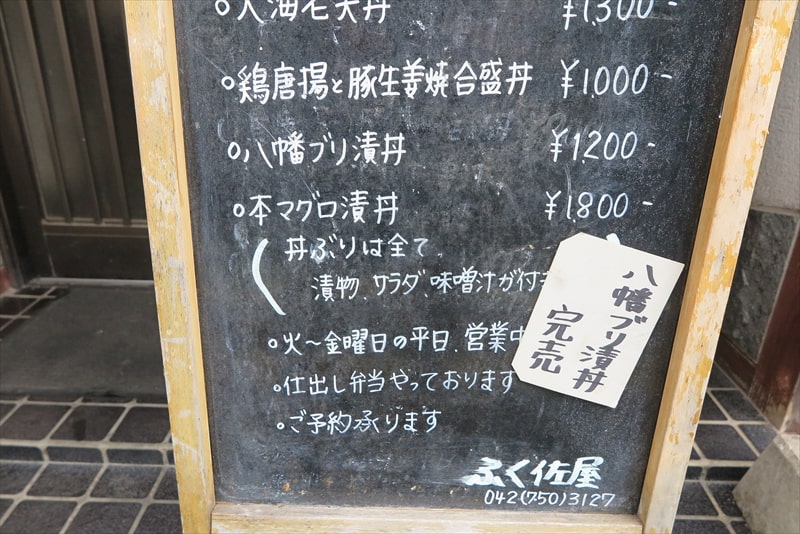 ○大海老天丼 ¥1,300-
○鶏唐揚と豚生姜焼合盛丼 ¥1,000-
○八幡ブリ漬丼 ¥1,200-
○本マグロ漬丼 ¥1,800-
(丼ぶりは全て
漬物、サラダ、味噌汁が付き
○火〜金曜日の平日、営業中
○仕出し弁当やっております
○ご予約承ります
八幡ブリ漬丼
完売
ふく佐屋
042(750)3127